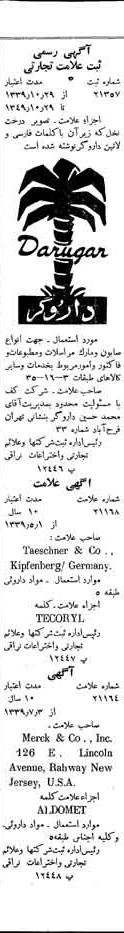 آگهی رسمی
ثبت علامت تجارتی
شماره ثبت مدت اعتبار
۲۱۳۵۷ از ۱۳۳۹/۱۰/۲۹
تا ۱۳۴۹/۱۰/۲۹
اجزاء علامت. تصویر درخت
نخل که زیر آن با کلمات فارسی و
لاتین داروگر نوشته شده است
Darugar
داروگر
موارد استعمال - جهت انواع
صابون و مارک مراسلات و مطبوعات و
فاکتور و امور مربوط بخدمات و سایر
کالاهای طبقات ۳-۱۶-۳۵
صاحب علامت. شرکت کف
با مسئولیت محدود بمدیریت آقای
محمد حسین داروگر بنشانی تهران
فرح‌آباد شماره ۳۳
رئیس اداره ثبت شرکتها و علائم
تجارتی و اختراعات نراقی
پ ۱۲۴۴۶
آگهی علامت
شماره علامت مدت اعتبار
۲۱۱۶۸ ۱۰ سال
از ۱۳۳۹/۵/۱
صاحب علامت:
Taeschner & Co.,
Kipfenberg/ Germany.
موارد استعمال - مواد داروئی
طبقه ۵
اجزاء علامت - کلمه
TECORYL
رئیس اداره ثبت شرکتها و علائم
تجارتی و اختراعات نراقی
پ ۱۲۴۴۷
آگهی
شماره علامت مدت اعتبار
۲۱۱۶۴ ۱۰ سال
از ۱۳۳۹/۷/۳
صاحب علامت.
Merck & Co., Inc.
126 E. Lincoln
Avenue, Rahway New
Jersey, U.S.A.
اجزاء علامت کلمه
ALDOMET
موارد استعمال - مواد داروئی.
و کلیه اجناس طبقه ۵
رئیس اداره ثبت شرکتها و علائم
تجارتی و اختراعات نراقی
پ ۱۲۴۴۸